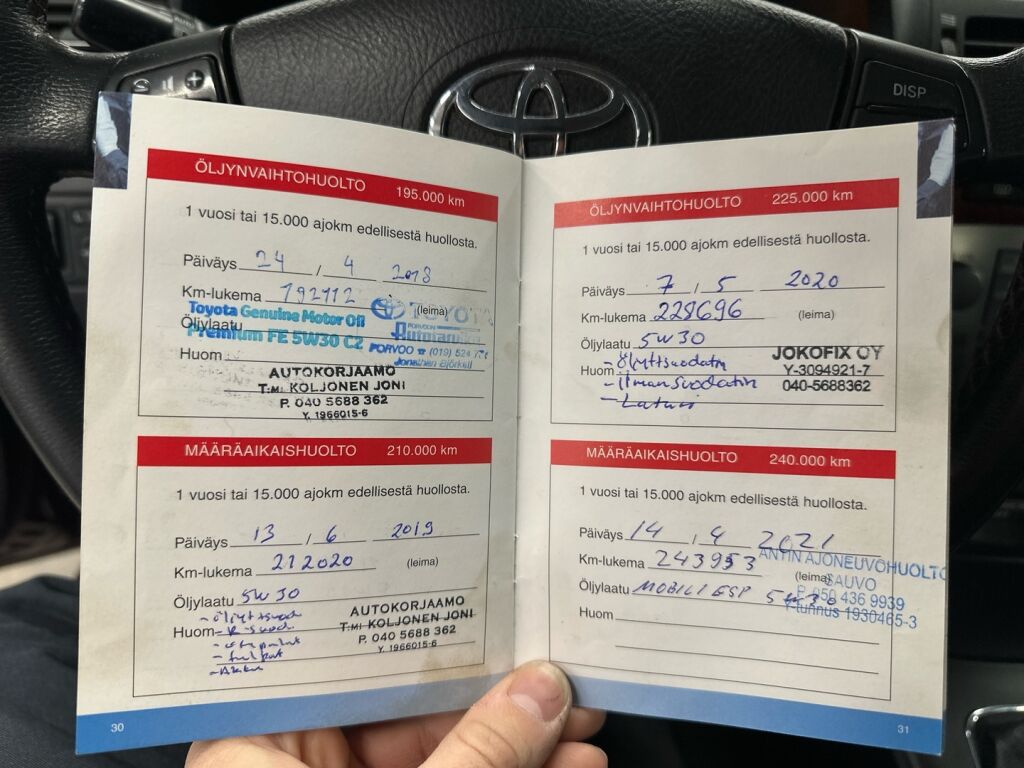 DISP
ÖLJYNVAIHTOHUOLTO 195.000 km
1 vuosi tai 15.000 ajokm edellisestä huollosta.
Päiväys 24 / 4 2018
Km-lukema 192112 (leima)
TOYOTA
Toyota Genuine Motor Oil
Öljylaatu
Premium FE 5W30 C2
PORVOO ☎ (019) 524
Huom
AUTOKORJAAMO
T:MI KOLJONEN JONI
P. 040 5688 362
Y. 1966015-6
MÄÄRÄAIKAISHUOLTO 210.000 km
1 vuosi tai 15.000 ajokm edellisestä huollosta.
Päiväys 13 / 6 2019
Km-lukema 212020 (leima)
Öljylaatu 5W30
Huom
AUTOKORJAAMO
T:MI KOLJONEN JONI
P. 040 5688 362
Y. 1966015-6
30
ÖLJYNVAIHTOHUOLTO 225.000 km
1 vuosi tai 15.000 ajokm edellisestä huollosta.
Päiväys 7 / 5 2020
Km-lukema 228696 (leima)
Öljylaatu 5W30
Huom - Öljyttsuodatin
- ilmansuodatin
- Laturi
JOKOFIX OY
Y-3094921-7
040-5688362
MÄÄRÄAIKAISHUOLTO 240.000 km
1 vuosi tai 15.000 ajokm edellisestä huollosta.
Päiväys 14 / 4 2021
Km-lukema 243953 (leima)
Öljylaatu MOBIL1 ESP 5W30
Huom
ANTIN AJONEUVOHUOLTO
SAUVO
P. 050 436 9939
Y-tunnus 1930465-3
31